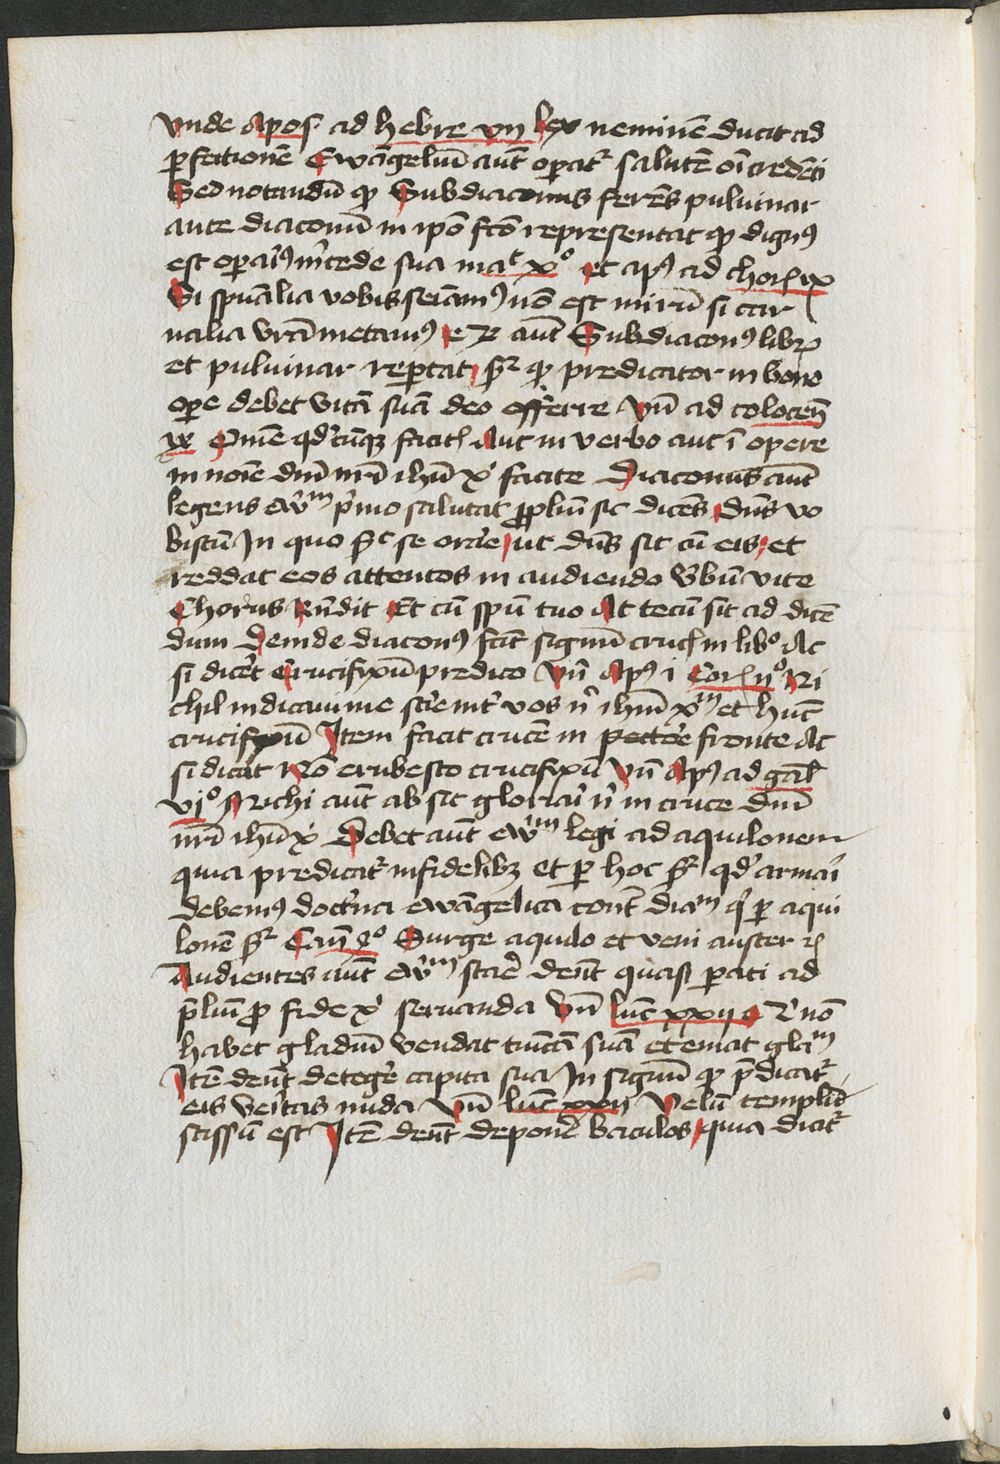 Vnde Apos. ad hebre vij lex neminē ducit ad
ꝑfectionē Ewāgeliū aūt oꝑat᷑ salutē oī credēti
Sed notandū ꝙ Subdiaconus ferēs puluinar
ante diaconū in ip̄o fc̄o representat ꝙ dignꝰ
est oꝑariꝰ m̄cede sua mat͛ xº et apꝰ ad chor ix
Si spūalia vobis seīamꝰ nō est mirū si car
nalia vr̄a metamꝰ aūt Subdiaconꝰ libꝝ
et puluinar reportat ꝙ predicator in bono
oꝑe debet vitā suā deo offerre Vn̄ ad colocen̄
Omē qd'cūqꝫ facit Aut in verbo aut ī opere
in noīe dn̄i nr̄i ihū xp̄i facite Diaconus aūt
legens ew̄m p̄mo salutat pplm̄ sic dicēs dn̄s vo
biscū In quo se orāe ut dn̄s sit cū eis et
reddat eos attentos in audiendo v̄bū vite
Chorus Rn̄dit Et cū spū tuo At tecū sit ad dicē
dum Deinde diaconꝰ fac̄t signū crucis in libº Ac
si dic̄et Crucifixū predico Vn̄ Apꝰ i Cor ijº Ni
chil indicaui me scīre int̄ vos n̄ ihm̄ xm̄ et hūc
crucifixū Item facit crucē in pectore fronte Ac
si dicat Nō erubesco crucifixū Vn̄ Apꝰ ad gal
vjº Michi aūt absit gloriari n̄ in cruce dn̄i
nr̄i ihū x Debet aūt ew̄m legi ad aquilonem
quia predicat᷑ infidelibꝫ et ꝑ hoc qd' armari
debemꝰ doctrina ewāgelica cont̄ diam̄ q' ꝑ aqui
lonē Can̄ 4º Surge aquilo et veni auster
Audientes aūt ew̄m stare den̄t quasi ꝑati ad
p̄liū ꝓ fide x seruanda Vn̄ luc̄ xxij Q' nō
habet gladiū vendat tunicā suā et emat glam̄
Itē den̄t deteḡe capita sua In signū ꝙ p̄dicat᷑
eis veritas nuda Vn̄ luc̄ xxij Velū templi
scissū est Itē den̄t deponere baculos quia dicit᷑